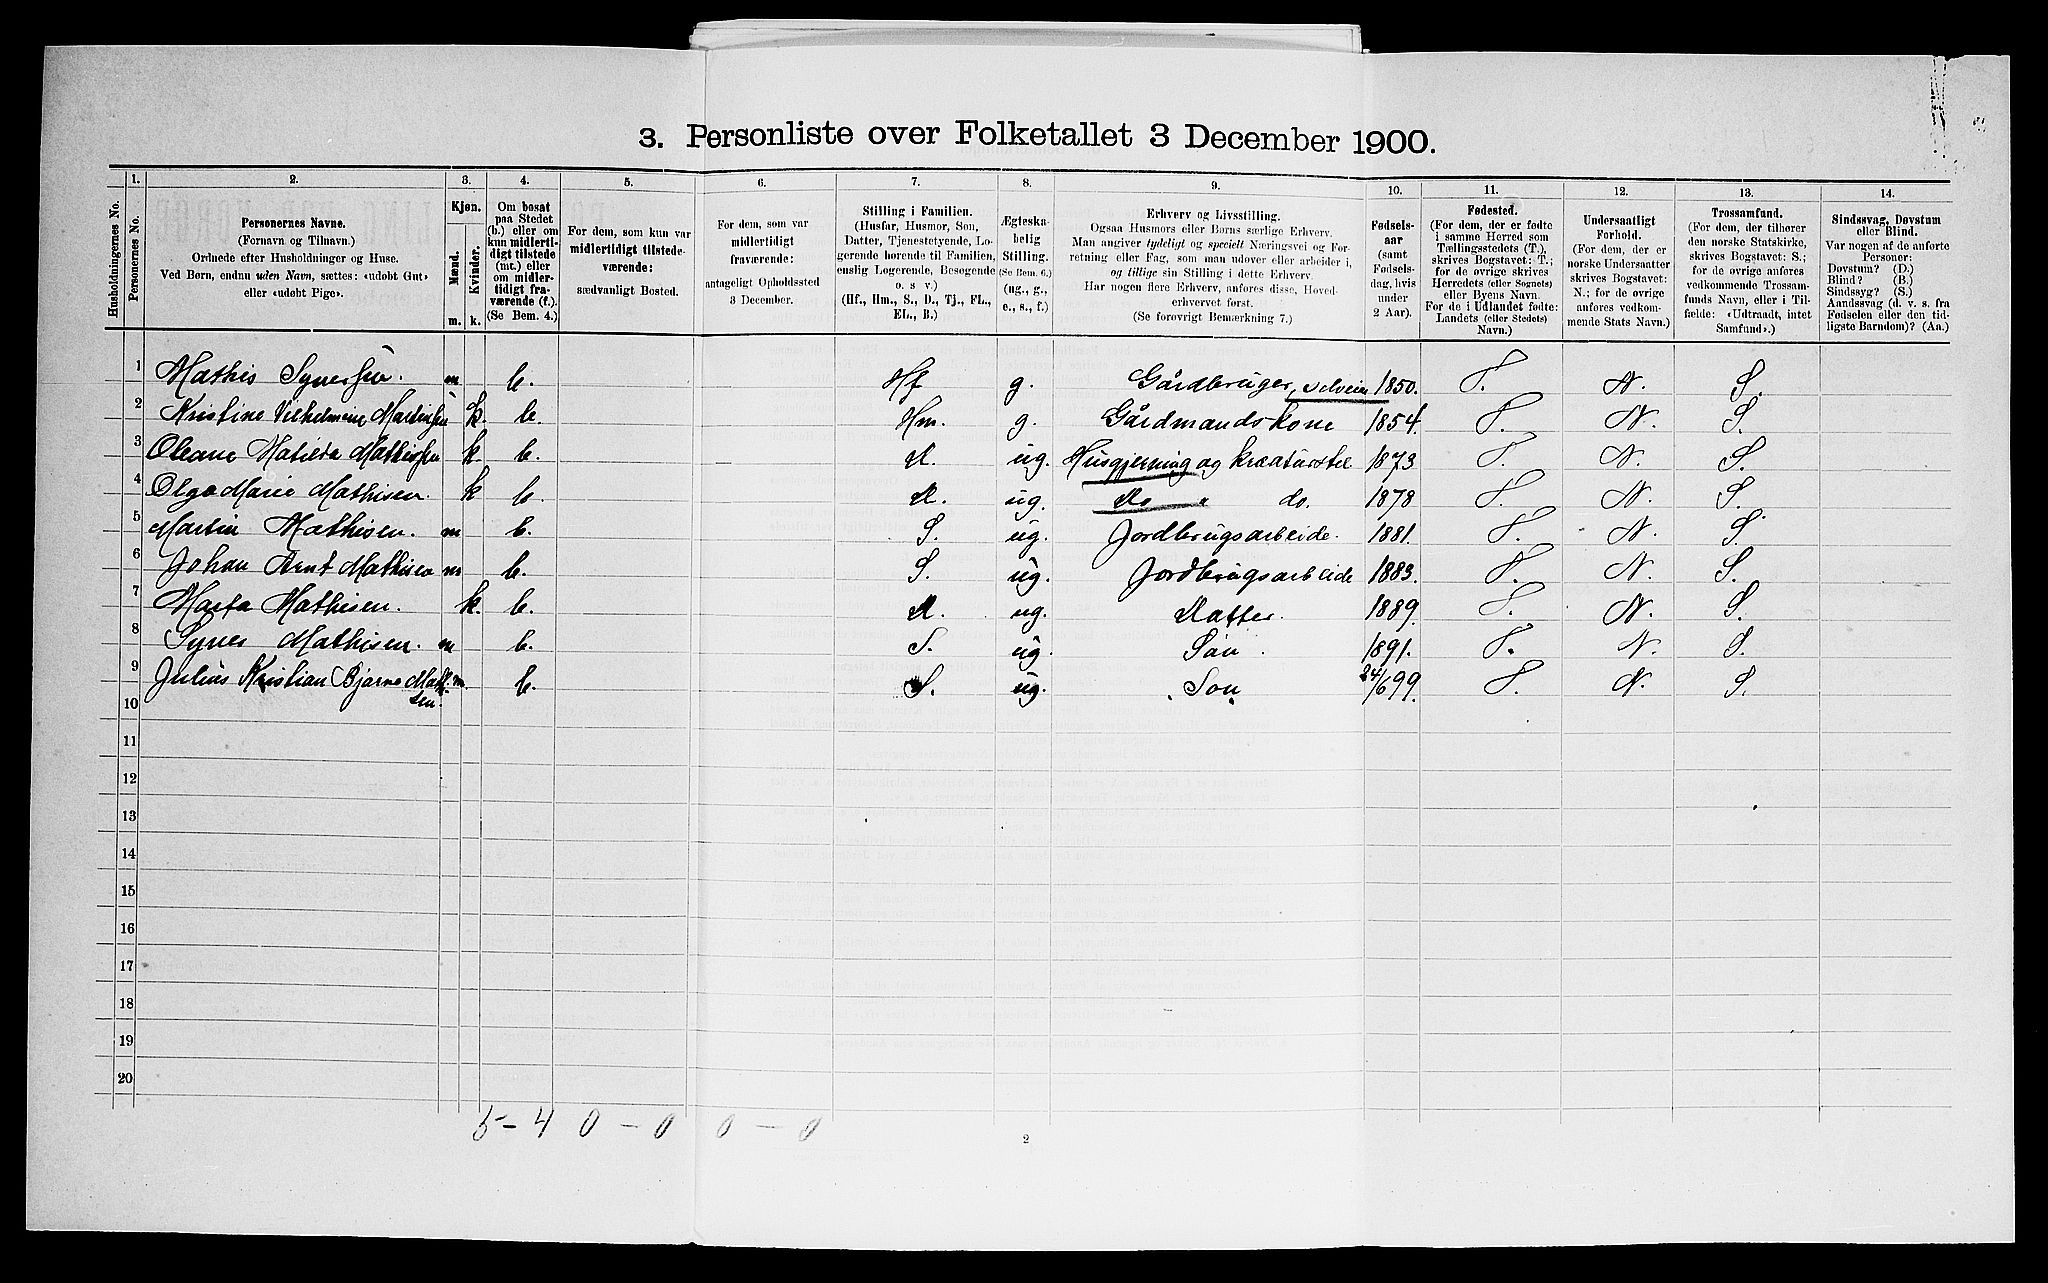 3. Personliste over Folketallet 3 December 1900.
1. 2. 3. 4. 5. 6. 7. 8. 9. 10. 11. 12. 13. 14.
Husholdningernes No.
Personernes No.
Personernes Navne.
(Fornavn og Tilnavn.)
Ordnede efter Husholdninger og Huse.
Ved Børn, endnu uden Navn, sættes: «udøbt Gut»
eller «udøbt Pige».
Kjøn.
Mænd.
Kvinder.
m. k.
Om bosat
paa Stedet
(b.) eller om
kun midlerti-
digt tilstede
(mt.) eller
om midler-
tidigt fra-
værende (f.).
(Se Bem. 4.)
For dem, som kun var
midlertidigt tilstede-
værende:
sædvanligt Bosted.
For dem, som var
midlertidigt
fraværende:
antageligt Opholdssted
3 December.
Stilling i Familien.
(Husfar, Husmor, Søn,
Datter, Tjenestetyende, Lo-
gerende hørende til Familien,
enslig Logerende, Besøgende
o. s v.)
(Hf., Hm., S., D., Tj., FL.,
EL., B.)
Ægteska-
belig
Stilling.
(Se Bem. 6.)
(ug., g.,
e., s., f.)
Erhverv og Livsstilling.
Ogsaa Husmors eller Børns særlige Erhverv.
Man angiver tydeligt og specielt Næringsvei og For-
retning eller Fag, som man udøver eller arbeider i,
og tillige sin Stilling i dette Erhverv.
Har nogen flere Erhverv, anføres disse, Hoved-
erhvervet først.
(Se forøvrigt Bemærkning 7.)
Fødsels-
aar
(samt
Fødsels-
dag, hvis
under
2 Aar).
Fødested.
(For dem, der er fødte
i samme Herred som
Tællingsstedets (T.),
skrives Bogstavet: T.;
for de øvrige skrives
Herredets (eller Sognets)
eller Byens Navn.
For de i Udlandet fødte:
Landets (eller Stedets)
Navn.)
Undersaatligt
Forhold.
(For dem, der er
norske Undersaatter
skrives Bogstavet:
N.; for de øvrige
anføres vedkom-
mende Stats Navn.)
Trossamfund.
(For dem, der tilhører
den norske Statskirke,
skrives Bogstavet: S.;
for de øvrige anføres
vedkommende Trossam-
funds Navn, eller i Til-
fælde: «Udtraadt, intet
Samfund».)
Sindssvag, Døvstum
eller Blind.
Var nogen af de anførte
Personer:
Døvstum? (D.)
Blind? (B.)
Sindssyg? (S.)
Aandssvag (d. v. s. fra
Fødselen eller den tid-
ligste Barndom)? (Aa.)
1 Mathis Syversen. m b. Hf g. Gårdbruger, selveier 1850. T. N. S.
2 Kristine Vilhelmine Martinsen k. b. Hm. g. Gårdmandskone 1854. T. N. S.
3 Oleane Matilda Mathisen k. b. D. ug. Husgjerning og kreaturstel 1873 T. N. S.
4 Olga Marie Mathisen. k b. D. ug. Do " do. 1878 T. N. S.
5 Martin Mathisen. m b. S. ug. Jordbrugsarbeide. 1881. T. N. S.
6 Johan Arnt Mathisen m b. S. ug. Jordbrugsarbeide 1883. T. N. S.
7 Marta Mathisen. k. b. D. ug. Datter. 1889. T. N. S.
8 Syver Mathisen. m b. S. ug. Søn. 1891. T. N. S.
9 Julius Kristian Bjarne Math- m. b. S. ug. Søn 24/6 99. T. N. S.
10 sen.
11
12
13
14
15
16
17
18
19
20
5 - 4 0 - 0 0 - 0
2